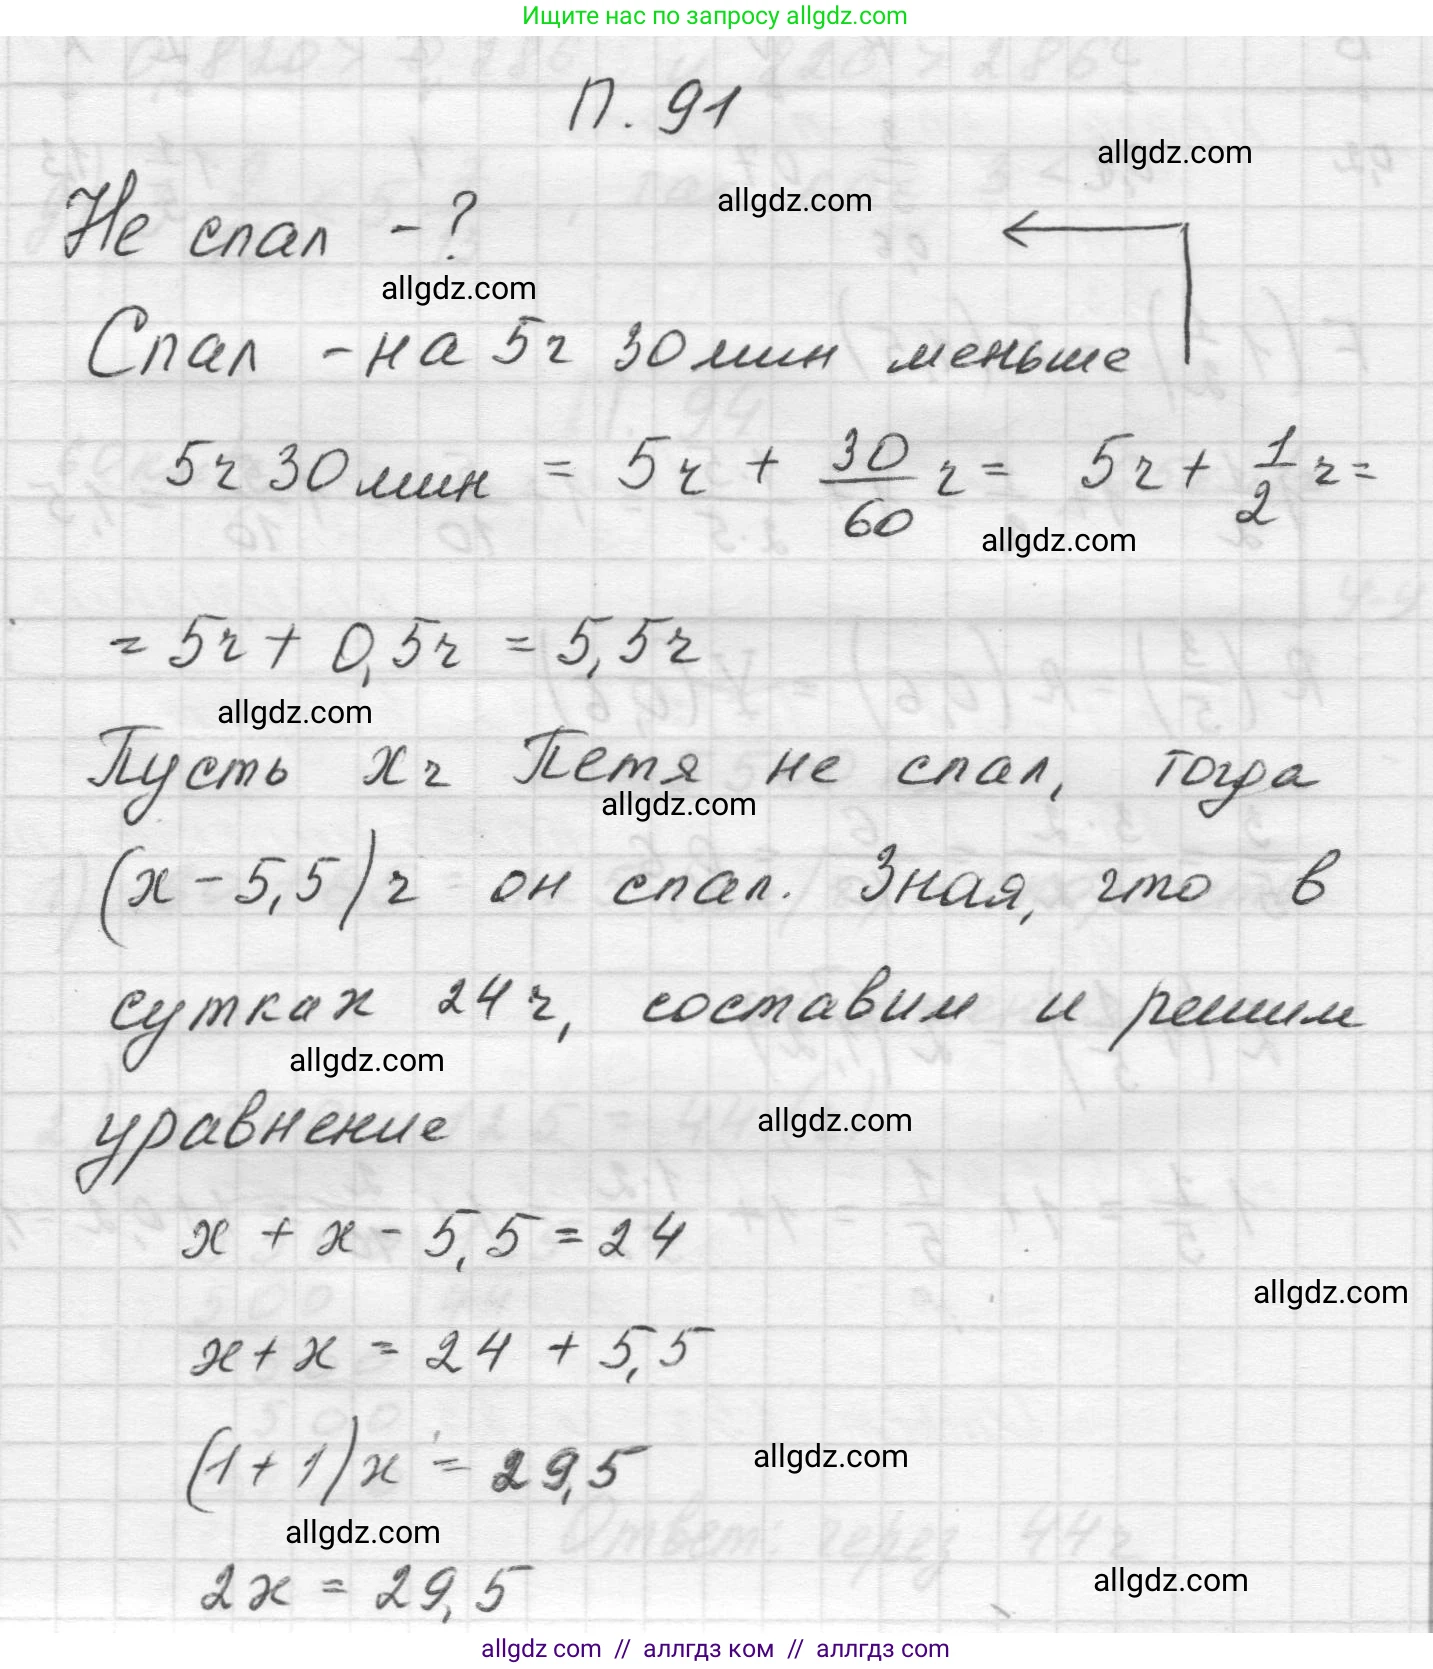 Ищите нас по запросу allgdz.com
П. 91
allgdz.com
allgdz.com
Не спал - ?
allgdz.com
Спал - на 5ч 30 мин меньше
5ч 30 мин = 5ч + 30/60 ч = 5ч + 1/2 ч =
allgdz.com
= 5ч + 0,5ч = 5,5ч
allgdz.com
Пусть х ч Петя не спал, тогда
allgdz.com
(х - 5,5) ч он спал. Зная, что в
сутках 24 ч, составим и решим
allgdz.com
уравнение
allgdz.com
х + х - 5,5 = 24
allgdz.com
х + х = 24 + 5,5
(1 + 1) х = 29,5
allgdz.com
allgdz.com
2х = 29,5
allgdz.com
allgdz.com // аллгдз ком // аллгдз com